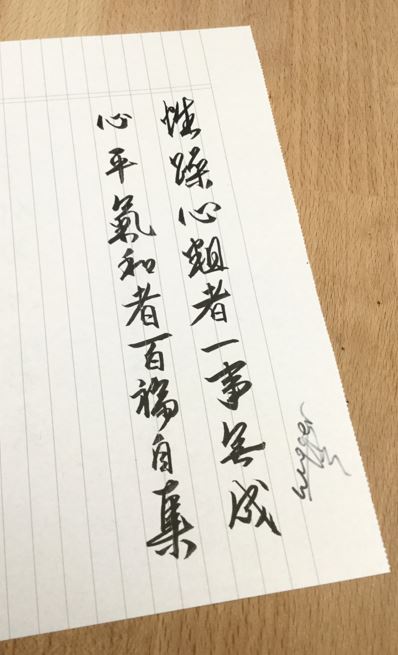 性躁心粗者一事無成
心平氣和者百福自集